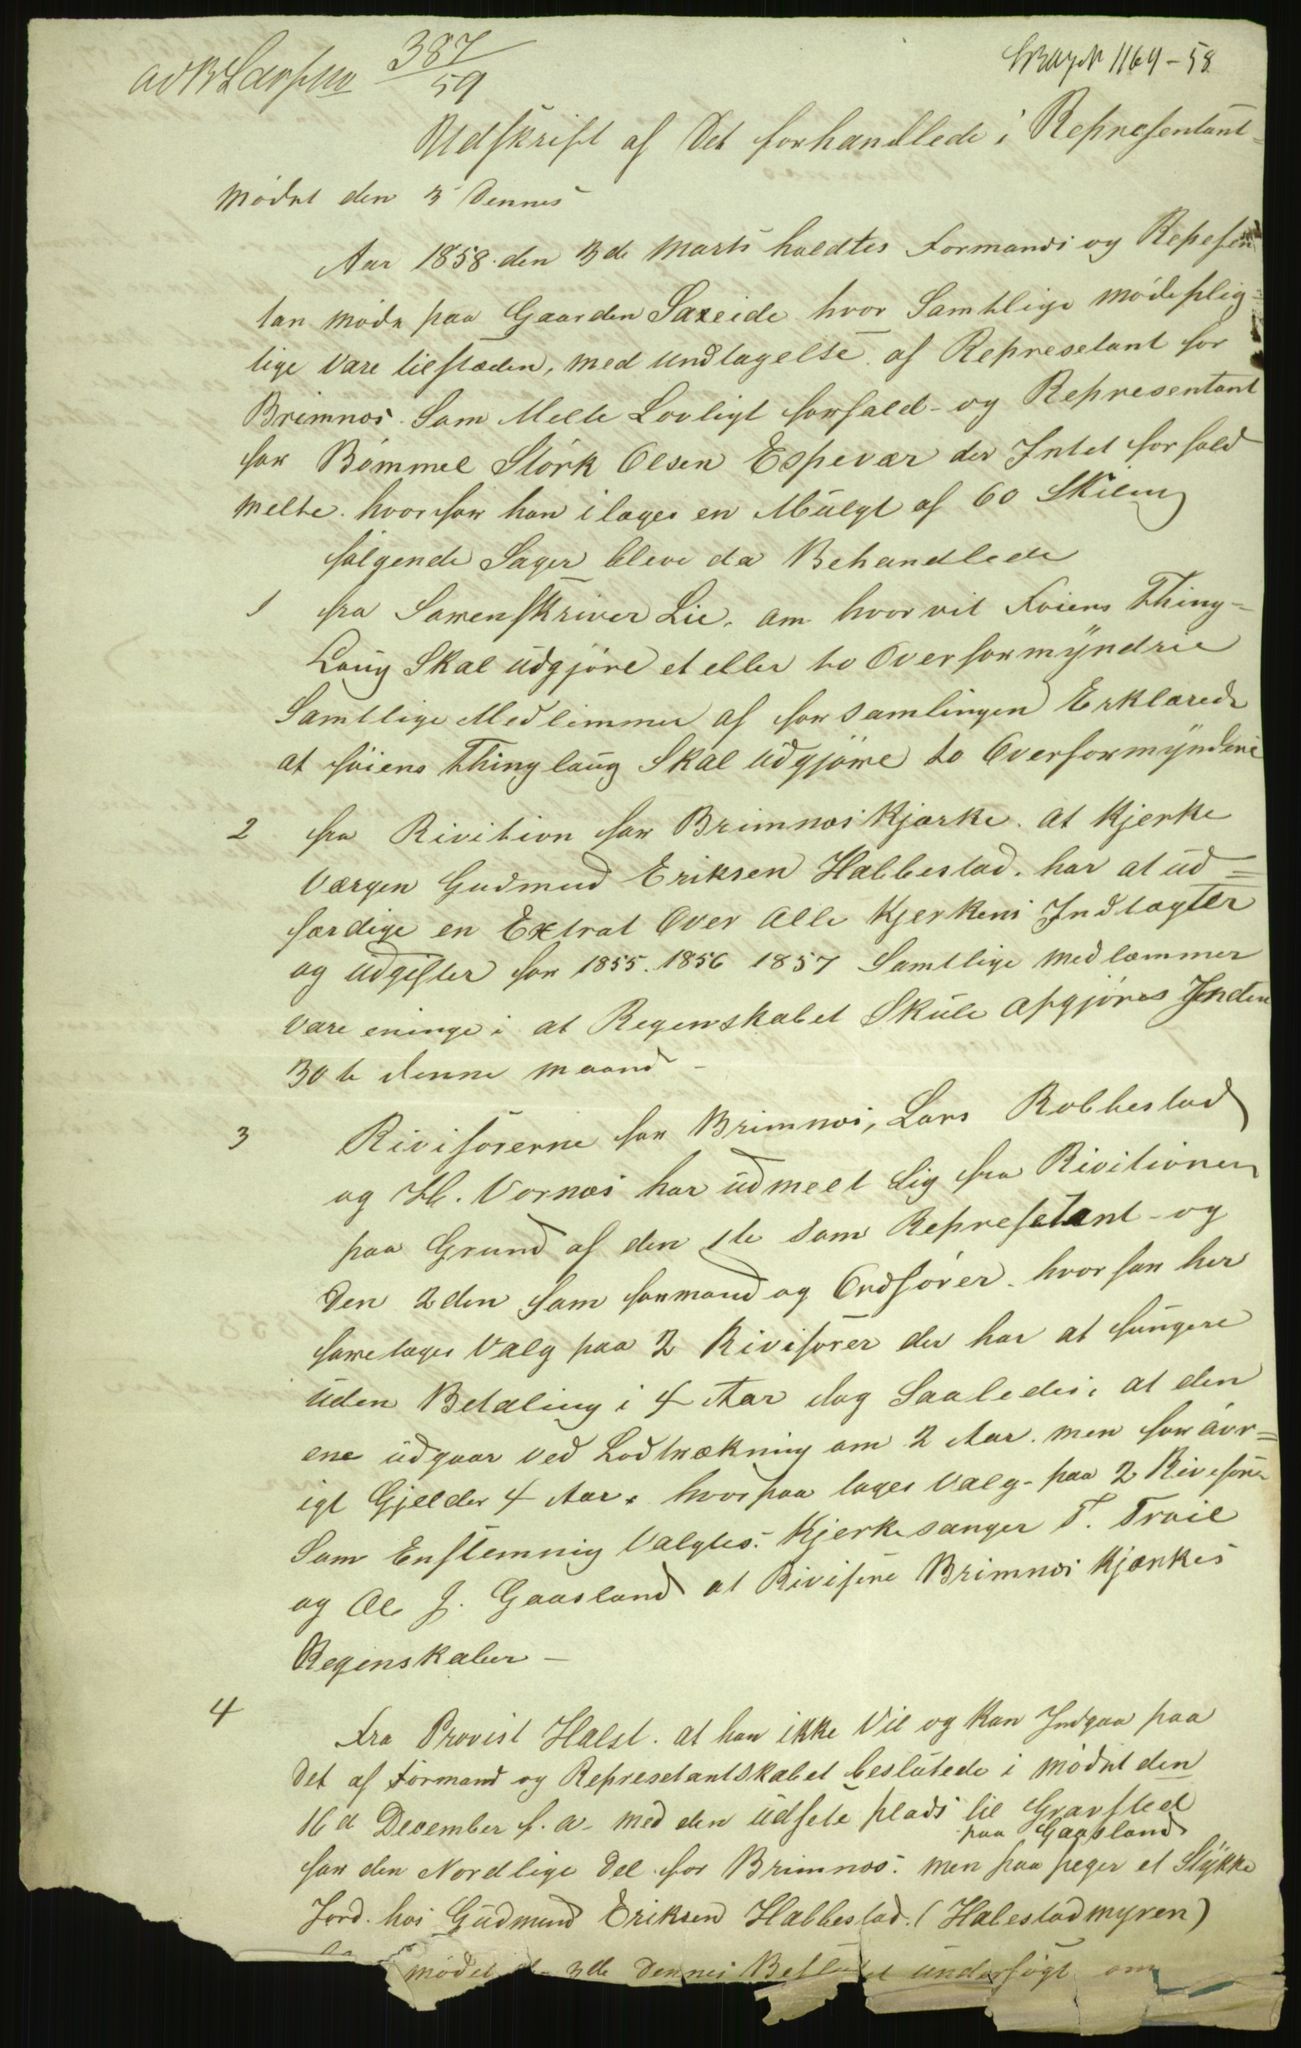 387
59
1164-58
Udskrift af Det forhandlede i Represfentant-
mödet den 3 Dennes
Aar 1858. den 3de Marts holdtes Formands og Repesen
tan möde paa Gaarden Saxeide hvor Samtlige mödeplig=
tige vare tilstæden, med undtagelse af Represetant for
Brimnæs Som Melte Lovligt forfald - og Representant
for Bömmel Störk Olsen Espevær der Intet forfald
melte. hvorfor han ilages en Mulgt af 60 Skiling
fölgende Sager bleve da Behandlede
1 fra Sorenskriver Lie. om hvorvit Föiens Thing=
Laug Skal udgjöre et eller to Overformyndrie
Samtlige Medlimmer af forsamlingen Erklærede
at föiens Thinglaug Skal udgjöre to Overformynderie
2 fra Rivition for Brimnæs Kjærke. at Kjerke
Værgen Gudmund Eriksen Habbestad. har at ud=
færdige en Extrat Over Alle Kjerkens Indtægter
og udgifter for 1855. 1856 1857 Samtlige medlæmmer
vare eninge i at Regenskabet Skule afgjöres Inden
30te denne maaned -
3 Rivisörerne for Brimnæs, Lars Robbestad
og H. Vornæs har udmeet Sig fra Rivitionen
paa Grund af den 1te Som Represetant - og
Den 2den Som formand og Ordförer. hvorfor her
foretages Valg paa 2 Rivisörer der har at fungere
uden Betaling i 4 Aar dog Saaledes. at den
ene udgaar ved Lodtrækning om 2 Aar. men for övr=
igt Gjelder 4 Aar. hvorpaa tages Valg - paa 2 Rivisörer
Som Enstemmig Valgtes. Kjerkesanger T. Trœil
og Ole J. Gaasland at Rivisere Brimnæs Kjærkes
Regenskaber -
4 Fra Provist Halst. at han ikke Vil og Kan Indgaa paa
Det af Formand og Represetantskabet beslutede i mödet den
16d December f. a - med den udsete plads til Gravsted
paa Gaasland
for den Nordlige Del for Brimnæs. men paa peger et Stykke
Jord. hos Gudmund Eriksen Habbestad. (Halestadmyren)
mödet d. 3de Dennes Beslutet undersögt om